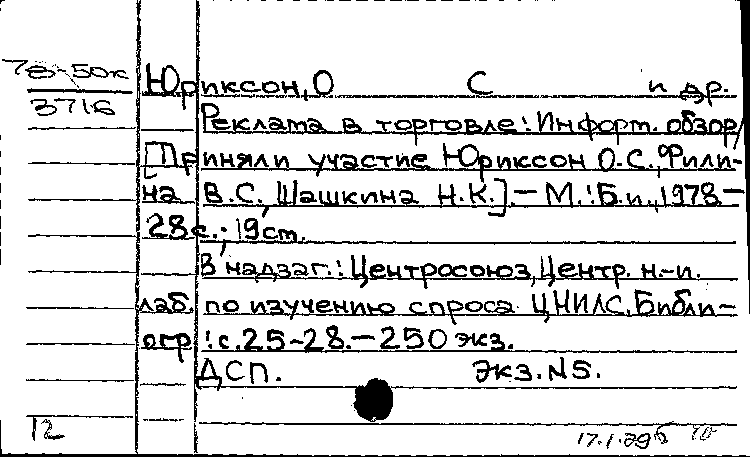 78-50к
3716
Юриксон, О С и др.
Реклама в торговле: Информ. обзор/
[Приняли участие Юриксон О.С., Фили-
на В.С., Шашкина Н.К.].— М.: Б.и., 1978.—
28с.; 19см.
В надзаг.: Центросоюз, Центр. н.-и.
лаб. по изучению спроса ЦНИЛС. Библи-
огр.: с.25-28.— 250 экз.
ДСП. Экз. №5.
12
17.1.79б